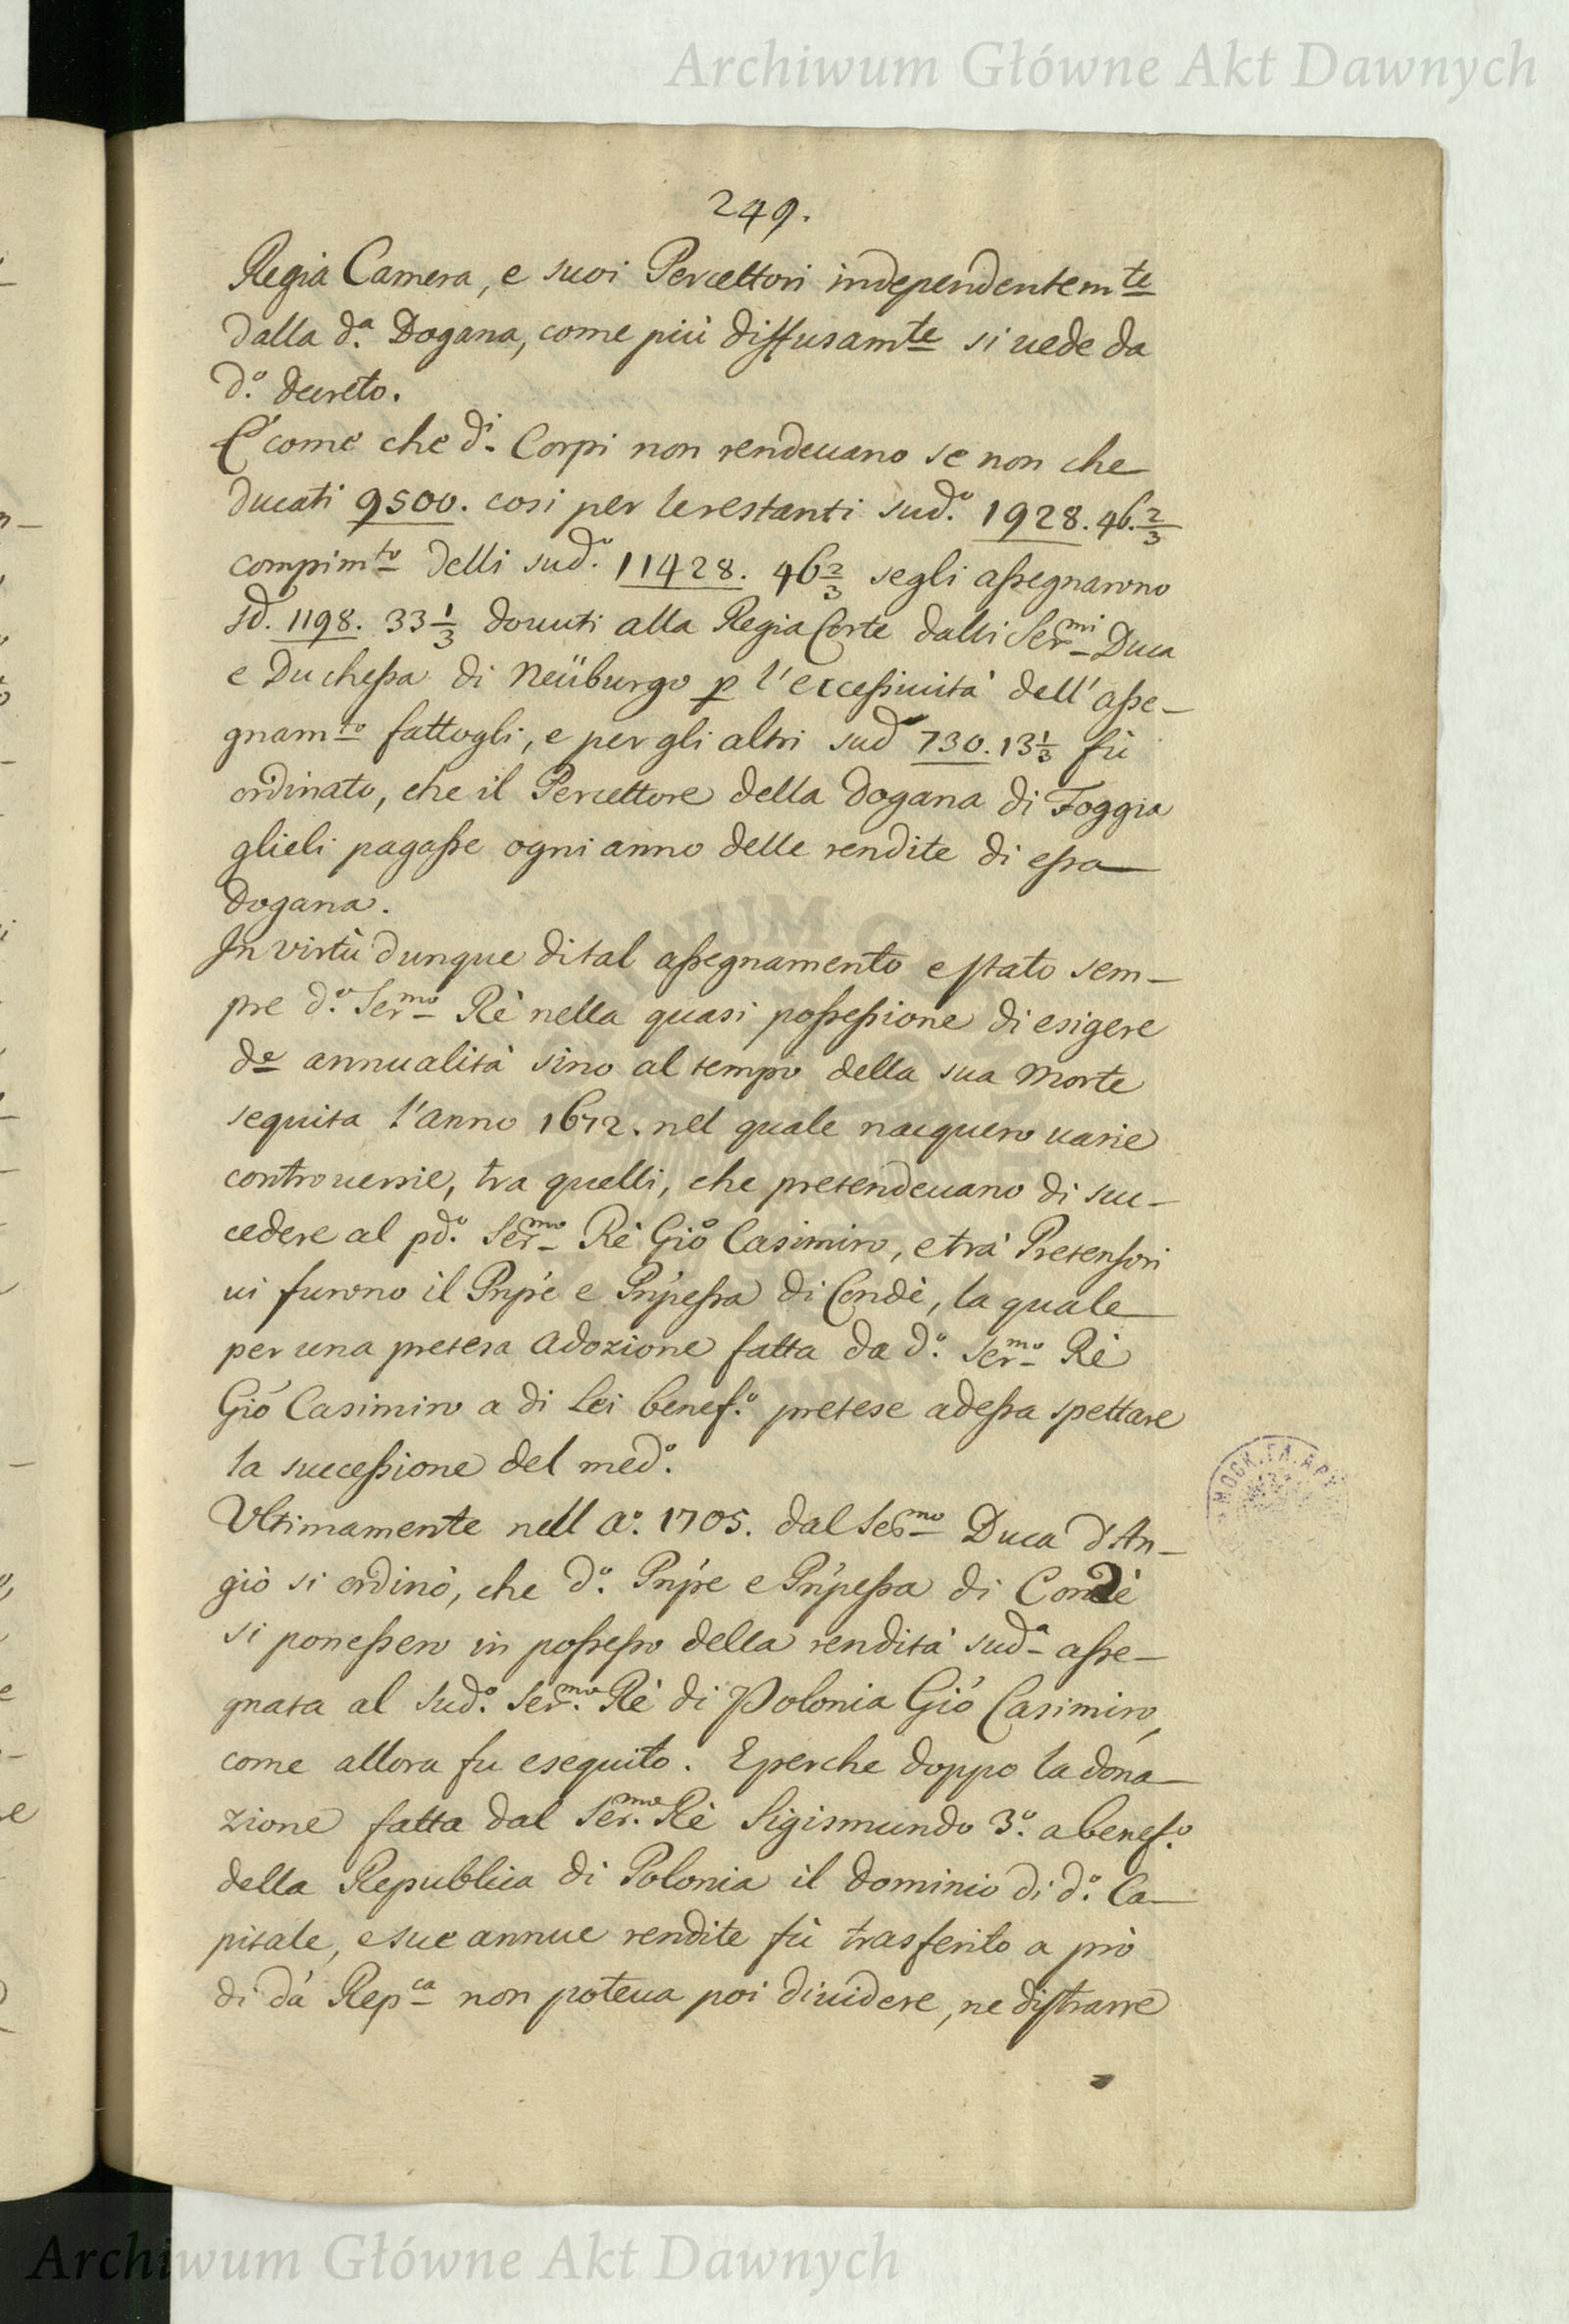 Archiwum Główne Akt Dawnych
249.
Regia Camera, e suoi Percettori independentem<sup>te</sup>
dalla d.ª Dogana, come più diffusam<sup>te</sup> si uede da
d.º decreto.
E' come che d.i Corpi non rendeuano se non che
ducati 9500. cosi per le restanti sud.º 1928. 46. 2/3
compim<sup>to</sup> delli sud.º 11428. 46 2/3 segli assegnarono
sd. 1198. 33 1/3 douuti alla Regia Corte dalli Ser<sup>mi</sup> Duca
e Duchessa di Neüburgo p l'eccessiuità dell'asse-
gnam<sup>to</sup> fattogli, e per gli altri sud 730. 13 1/3 fù
ordinato, che il Percettore della Dogana di Foggia
glieli pagasse ogni anno delle rendite di essa
Dogana.
In virtù dunque di tal assegnamento e stato sem-
pre d.º Ser<sup>mo</sup> Rè nella quasi possessione di esigere
d<sup>e</sup> annualità sino al tempo della sua Morte
seguita l'anno 1672. nel quale nacquero uarie
controuersie, tra quelli, che pretendeuano di suc-
cedere al pd.º Ser<sup>mo</sup> Rè Giõ Casimiro, e trà Pretensori
ui furono il Pnpe e Pnpessa di Condè, la quale
per una pretesa Adozione fatta da d.º Ser<sup>mo</sup> Rè
Giõ Casimiro a di Lei benef.º pretese ad essa spettare
la successione del med.º
Ultimamente nell a.º 1705. dal Ser<sup>mo</sup> Duca d'An-
giò si ordinò, che d.º Pnpe e Pnpessa di Condè
si ponessero in possesso della rendità sud.ª asse-
gnata al sud.º Ser.<sup>mo</sup> Rè di Polonia Giõ Casimiro,
come allora fu eseguito. E perche doppo la dona-
zione fatta dal Ser.<sup>mo</sup> Rè Sigismundo 3.º a benef.º
della Republica di Polonia il dominio di d.º Ca-
pitale, e sue annue rendite fù trasferito a prò
di dª Rep<sup>ca</sup> non poteua poi diuidere, ne distrarre
Archiwum Główne Akt Dawnych